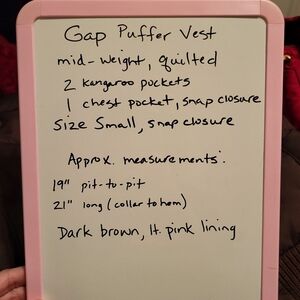 Gap Puffer Vest
mid-weight, quilted
2 kangaroo pockets
1 chest pocket, snap closure
Size Small, snap closure
Approx. measurements:
19" pit-to-pit
21" long (collar to hem)
Dark brown, lt. pink lining